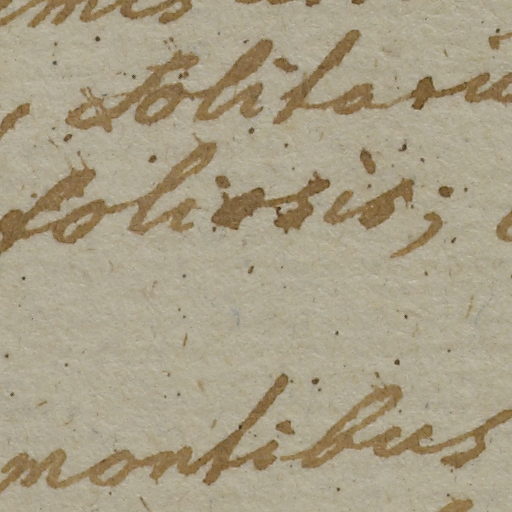 solitari
foliosis;
montibus